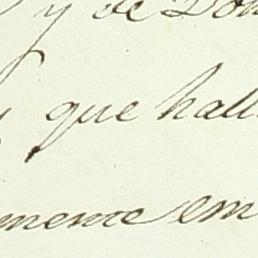 y de Don
que hall
mente em